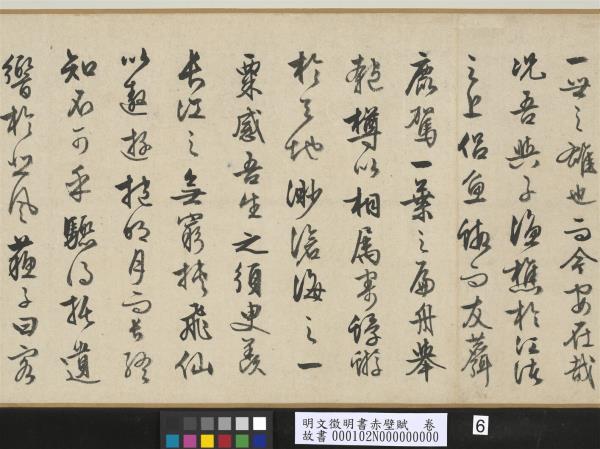 一世之雄也而今安在哉
況吾與子漁樵於江渚
之上侶魚蝦而友麋
鹿駕一葉之扁舟舉
匏樽以相屬寄蜉蝣
於天地渺滄海之一
粟感吾生之須臾羨
長江之無窮挾飛仙
以遨遊抱明月而長終
知不可乎驟得託遺
響於悲風蘇子曰客
明文徵明書赤壁賦 卷
故書 000102N000000000
6